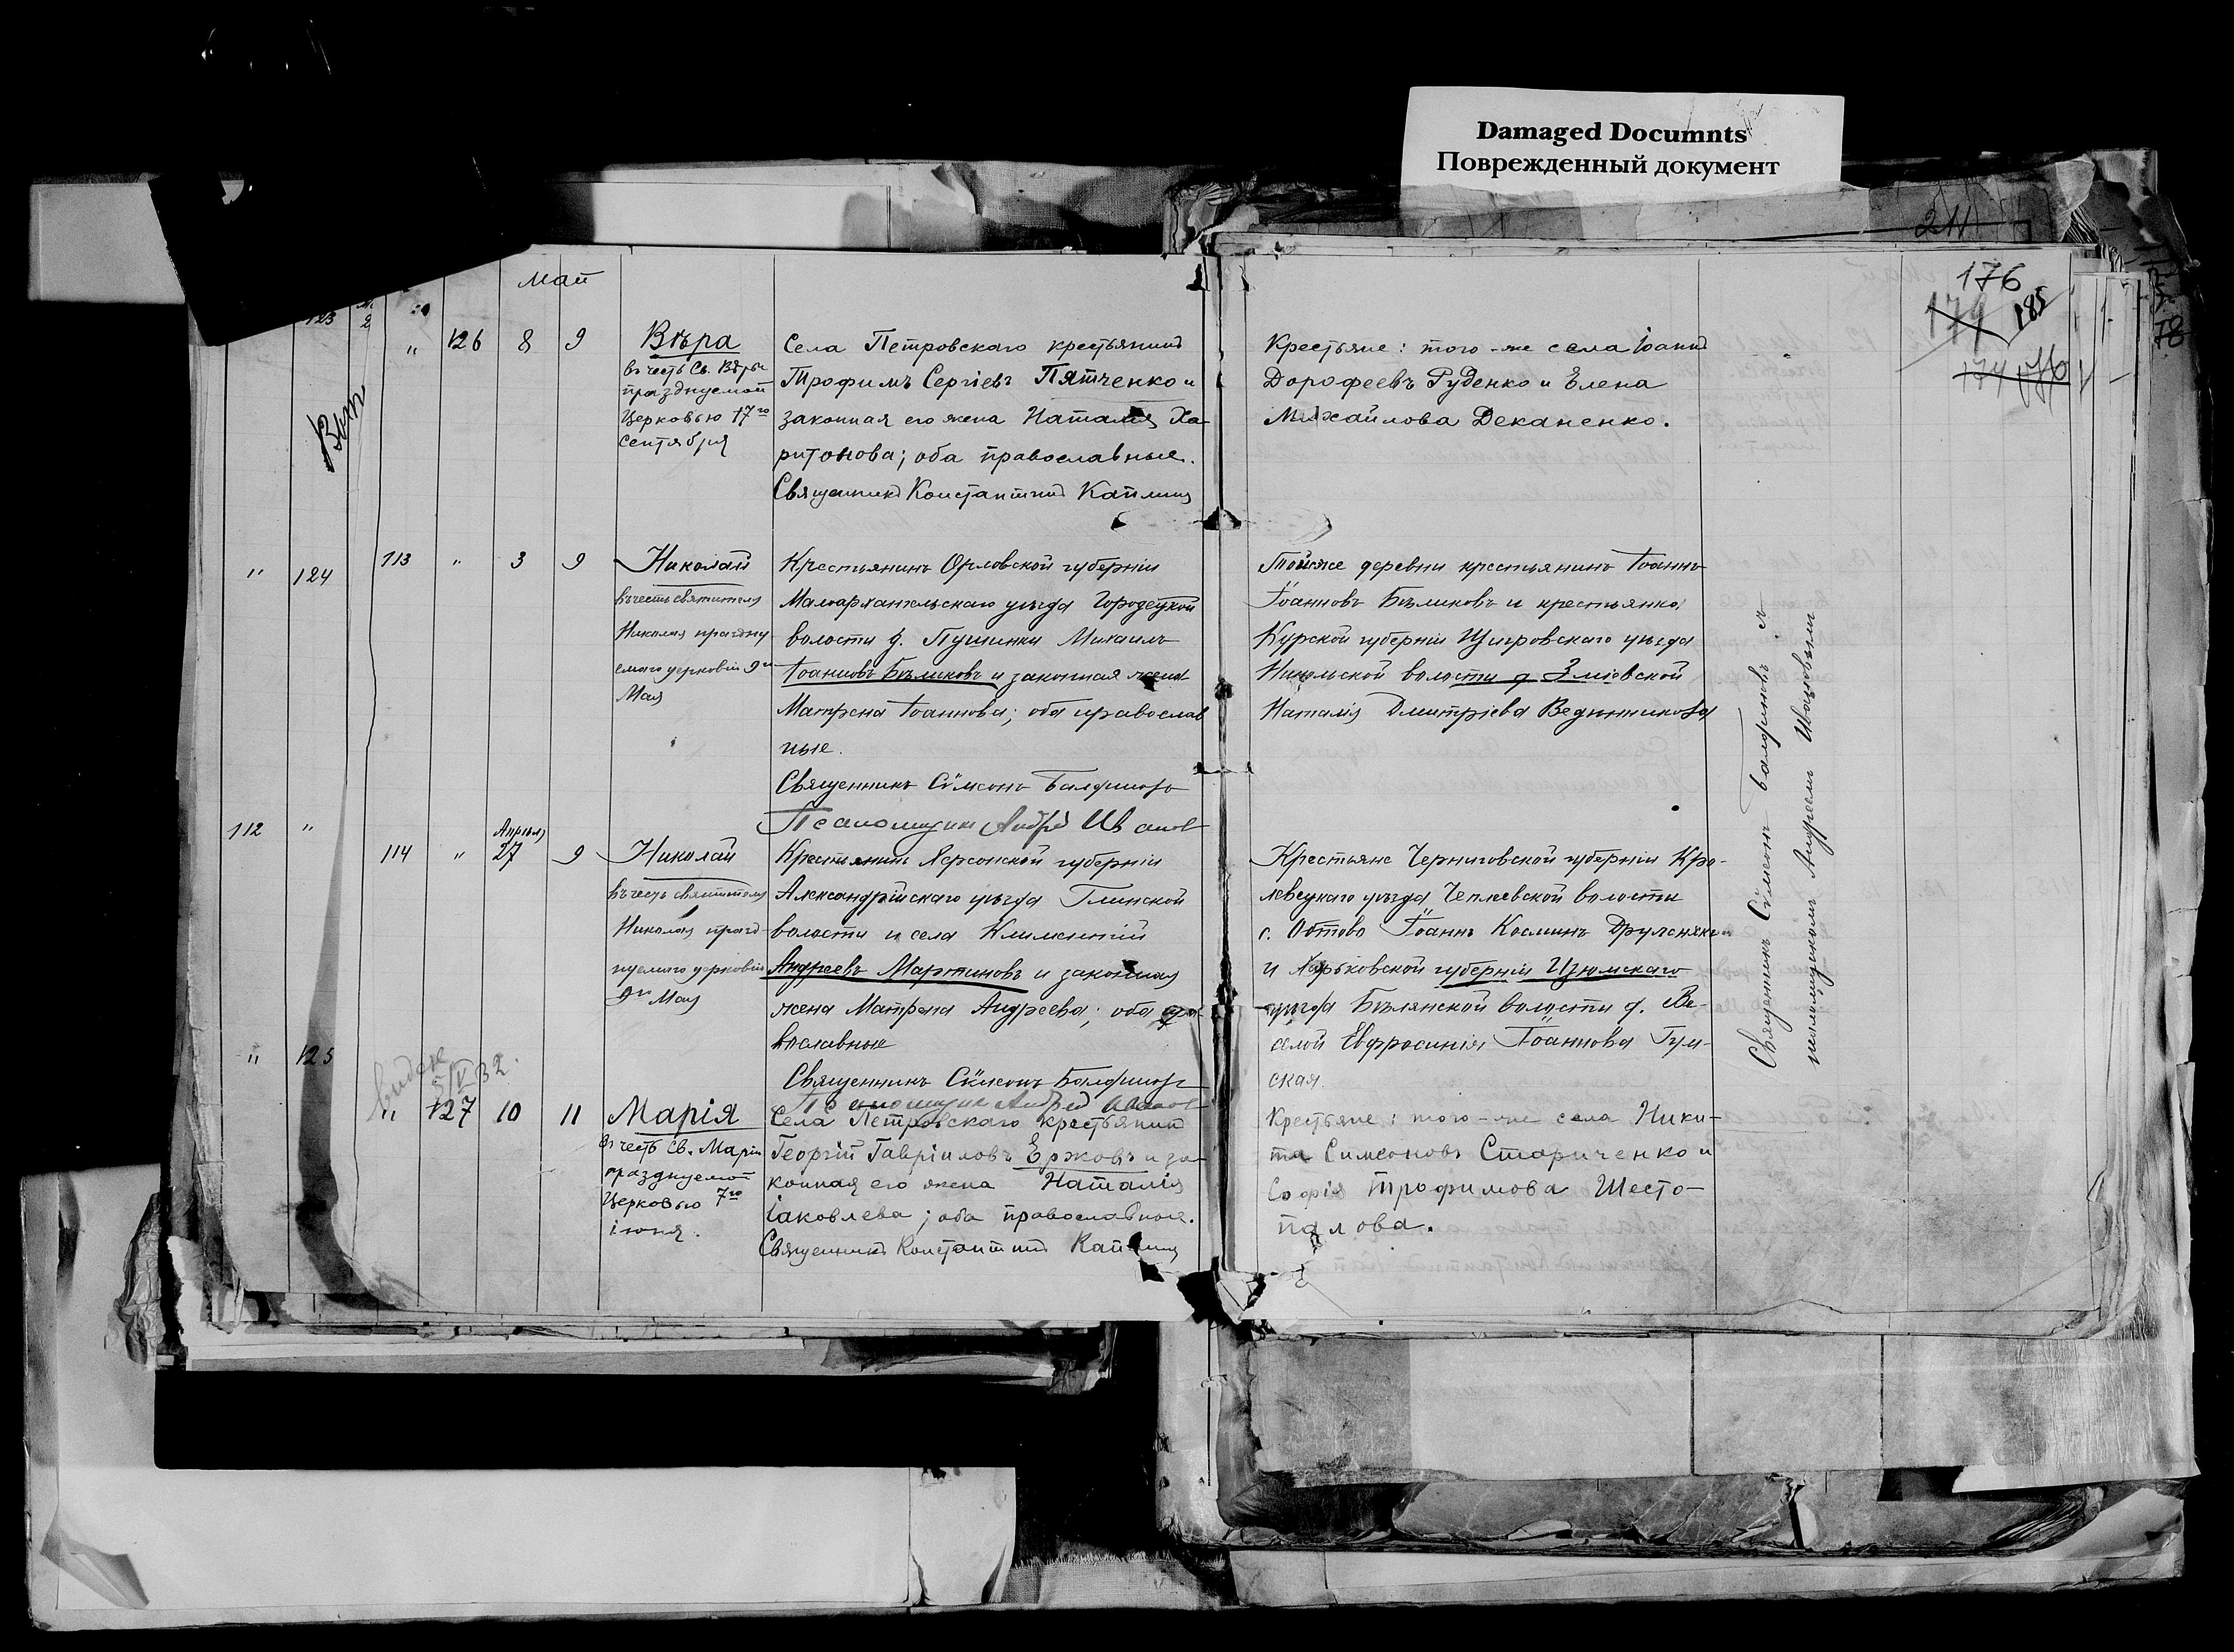 Damaged Documnts
Поврежденный документ
211
176
179 185
174 176
78
Май
123
2
" 126 8 9
Вѣра
въ честь Св. Вѣры
празднуемой
Церковью 17го
Сентября
Села Петровскаго крестьянинъ
Трофимъ Сергіевъ Пятченко и
законная его жена Наталія Ха
ритонова; оба православные.
Священникъ Константинъ Каплинъ
Крестьяне: того-же села Іоаннъ
Дорофеевъ Руденко и Елена
Михайлова Деканенко.
" 124
113 " 3 9
Николай
въ честь святителя
Николая праздну
емаго церковію 9го
Мая
Крестьянинъ Орловской губерніи
Малоархангельскаго уѣзда Городецкой
волости д. Пушинки Михаилъ
Іоанновъ Бѣликовъ и законная жена
Матрена Іоаннова; оба православ
ные.
Священникъ Сѵмеонъ
Псаломщик Андрей Иванов
Тойже деревни крестьянинъ Іоаннъ
Іоанновъ Бѣликовъ и крестьянка
Курской губерніи Щигровскаго уѣзда
волости д. Зміевской
Наталія Дмитріева
112 "
114 " Апрѣля 27 9
Николай
въ честь святителя
Николая празд-
нуемаго церковію
9го Мая
Крестьянинъ Херсонской губерніи
Александрійскаго уѣзда Глинской
волости и села Климентій
Андреевъ Мартиновъ и законная
жена Матрена Андреева; оба пра
вославные
Священникъ Сѵмеонъ
Псаломщик Андрей Иванов
Крестьяне Черниговской губерніи Кро-
левецкаго уѣзда Чеплеевской волости
с. Обтово Іоаннъ Косминъ
и Харьковской губерніи Изюмскаго
уѣзда Бѣлянской волости д. Ве-
селой Евфросинія Іоаннова Гум-
ская.
Священникъ Сѵмеонъ
псаломщикомъ Андреемъ Ивановымъ
" 125
5/V 32.
" 127 10 11
Марія
въ честь Св. Маріи
празднуемой
Церковью 7го
іюня.
Села Петровскаго крестьянинъ
Георгій Гавріиловъ Ержовъ и за-
конная его жена Наталія
Іаковлева; оба православные.
Священникъ Константинъ Каплинъ
Крестьяне: того-же села Ники-
та Симеоновъ Стариченко и
Софія Трофимова Шесто-
палова.